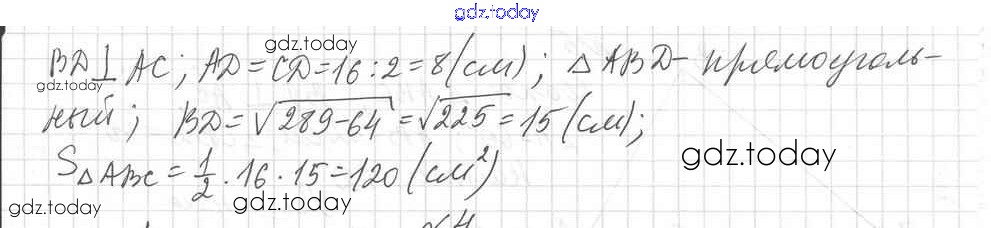 gdz.today
gdz.today
BD⊥AC; AD=CD=16:2=8(см); △ABD- прямоуголь-
gdz.today
ный; BD=√289-64=√225=15(см);
gdz.today
S△ABC=1/2·16·15=120(см²)
gdz.today
gdz.today